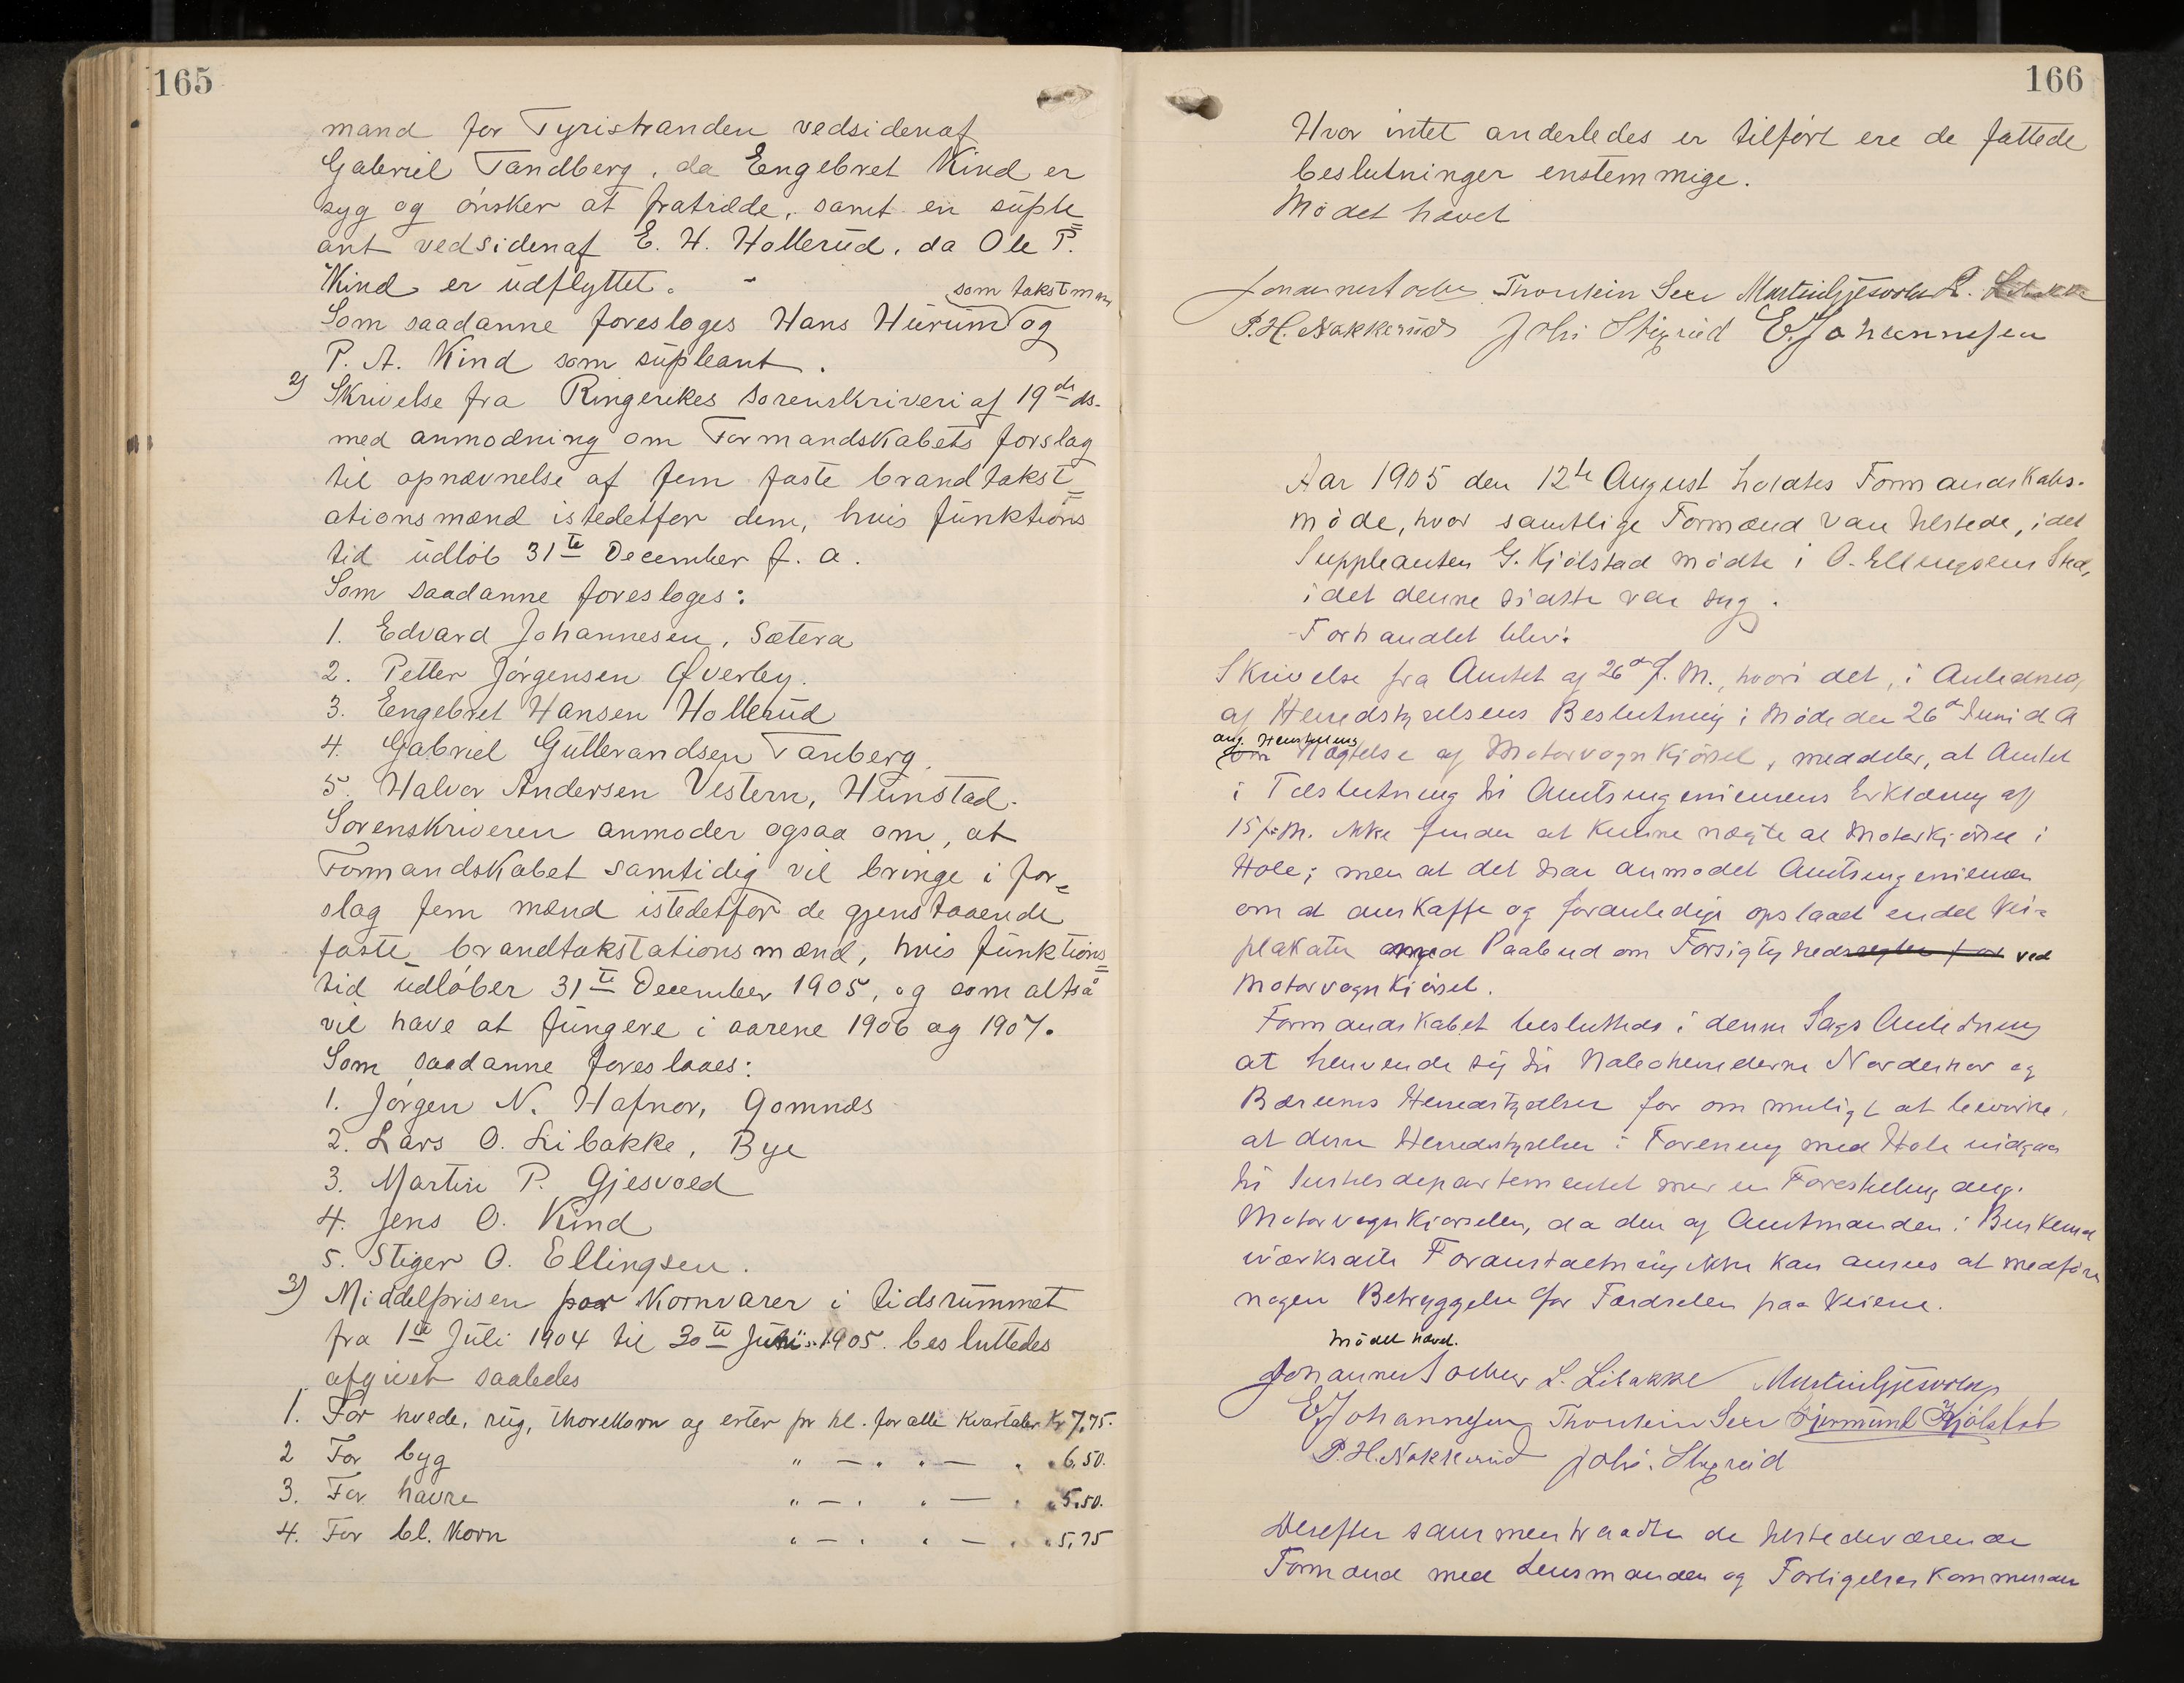 165
mand for Tyristranden vedsidenaf
Gabriel Tandberg, da Engebret Kind er
syg og ønsker at fratræde, samt en suple=
ant vedsidenaf E. H. Hollerud, da Ole P.
Kind er udflyttet. -
som takstman
Som saadanne foresloges Hans Hurum og
P. A. Kind som supleant.
2) Skrivelse fra Ringerikes Sorenskriveri af 19de ds.
med anmodning om Formandskabets forslag
til opnævnelse af fem faste brandtakst=
ationsmænd istedetfor dem, hvis funktions
tid udløb 31te December f. a.
Som saadanne foresloges:
1. Edvard Johannesen, Sætera
2. Petter Jørgensen Øverby.
3. Eengebret Hansen Hollerud
4. Gabriel Gullerandsen Tanberg.
5. Halvor Andersen Vestern, Hunstad.
Sorenskriveren anmoder ogsaa om, at
Formandskabet samtidig vil bringe i for=
slag fem mænd istedetfor de gjenstaaende
faste brandtakstationsmænd, hvis funktions=
tid udløber 31te December 1905, og som altså
vil have at fungere i aarene 1906 og 1907.
Som saadanne foreslaaes:
1. Jørgen N. Hafnor, Gomnæs
2. Lars O. Libakke, Bye
3. Martin P. Gjesvold
4. Jens O. Kind
5. Stiger O. Ellingsen.
3) Middelprisen paa Kornvarer i tidsrummet
fra 1te Juli 1904 til 30te Juni 1905. besluttedes
afgivet saaledes
1. For hvede, rug, thorekorn og erter pr hl. for alle Kvartaler Kr 7,75.
2 For byg " — . . — . . 6,50.
3. For havre " — . . — . " 5.50.
4. For bl. Korn " — . . — . . 5,75
166
Hvor intet anderledes er tilført ere de fattede
beslutninger enstemmige.
Mødet hævet
Thorstein Sexe Martin Gjesvold L. Libakke
P. H. Nakkerud Johs Stixrud E. Johannesen
Aar 1905 den 12te August holdtes Formandskabs-
møde, hvor samtlige Formænd var tilstede, idet
Suppleanten G. Kjølstad mødte i O. Ellingsens Sted,
idet denne sidste var syg.
Forhandlet blev:
Skrivelse fra Amtet af 26de f. M., hvori det, i Anledning
af Herredstyrelsens Beslutning i Møde den 26de Juni d A
ang. Henstilling
om Nægtelse af Motorvognkjørsel, meddeler, at Amtet
i Tilslutning til Amtsingeniørens Erklæring af
15 f. M. ikke finder at kunne nægte al Motorkjørsel i
Hole; men at det har anmodet Amtsingeniøren
om at anskaffe og foranledige opslaaet endel Vei=
plakater med Paabud om Forsigtighedsregler for ved
Motorvognkjørsel.
Formandskabet besluttede i denne Sags Anledning
at henvende sig til Naboherrederne Norderhov og
Bærums Herredstyrelser for om muligt at bevirke,
at disse Herredstyrelser i Forening med Hole indgaar
til Justisdepartementet med en Forestilling ang.
Motorvognkjørselen, da den af Amtmanden i Buskerud
iværksatte Foranstaltning ikke kan ansees at medføre
nogen Betryggelse for Færdselen paa Veiene.
Mødet hævet.
L. Libakke Martin Gjesvold
E. Johannesen Thorstein Sexe Gjermund Kjølstad
P. H. Nakkerud Johs. Stixrud
Derefter sammentraadte de tilstedeværende
Formænd med Lensmanden og Forligelseskommissær